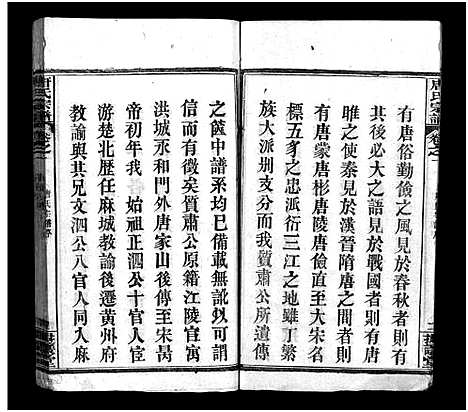 有唐俗勤儉之風見於春秋者則有
其後必大之語見於戰國者則有唐
雎之使秦見於漢晉隋唐之間者則
有唐蒙唐彬唐陵唐儉直至大宋名
標五豸之忠派衍三江之地雖丁繁
族大派別支分而我質肅公所遺傳
之簴中譜系均已備載無訛以可得
信而有徵矣質肅公原籍江陵官寓
洪城永和門外唐家山後傳至宋暠
帝初年我 始祖正泗公十官人宦
游楚北歷任麻城教諭後遷黃州府
教諭與其兄文泗公八官人同入麻
唐氏宗譜
卷之
唐氏宗譜